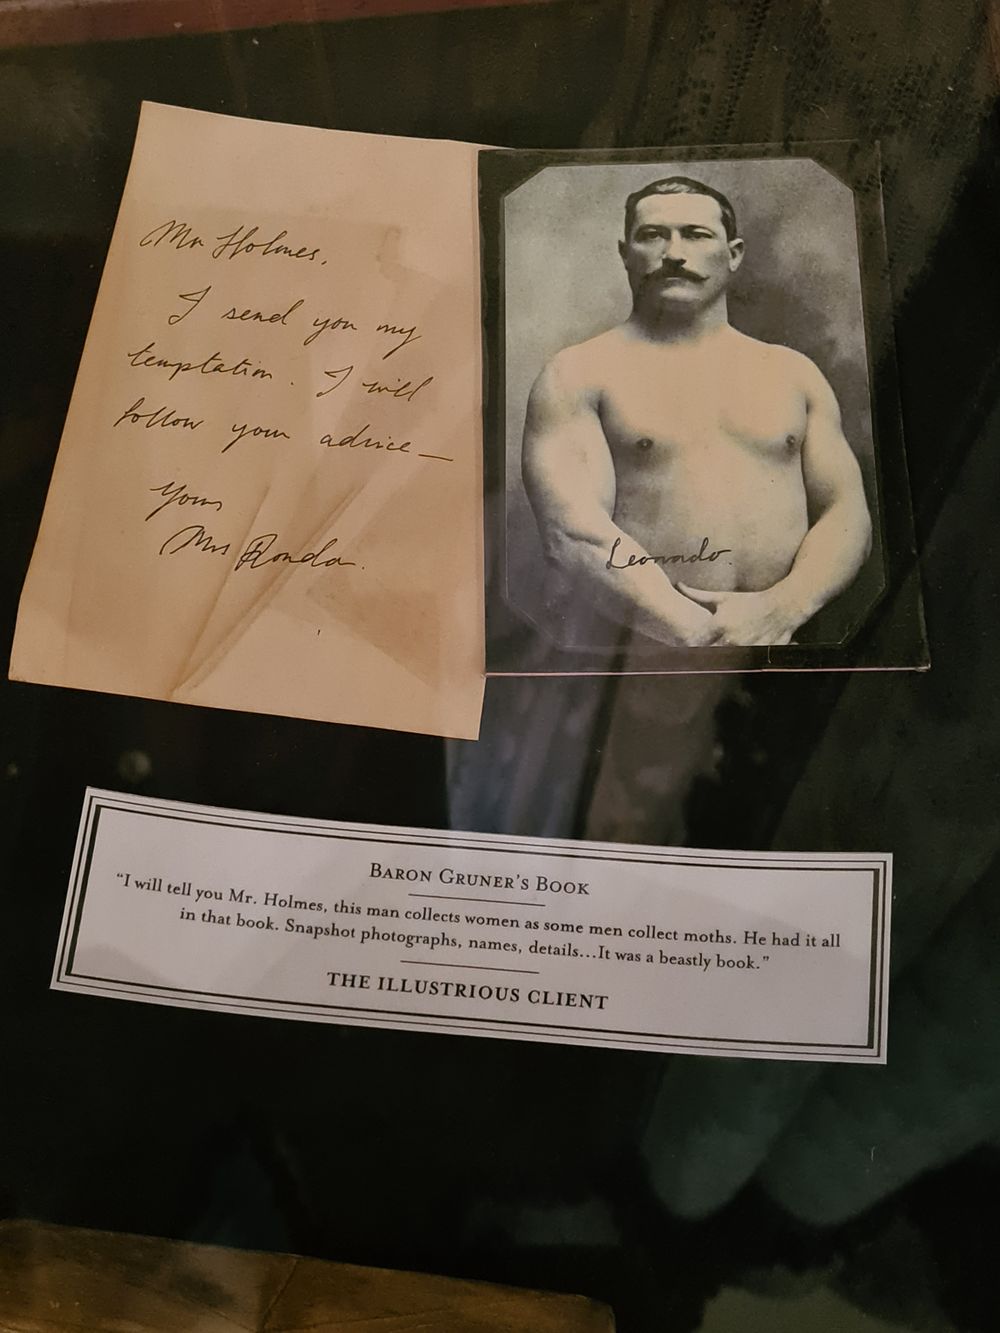 Mr Holmes,
I send you my
temptation. I will
follow your advice—
Yours
Mrs Ronda.
Leonardo.
BARON GRUNER'S BOOK
“I will tell you Mr. Holmes, this man collects women as some men collect moths. He had it all
in that book. Snapshot photographs, names, details...It was a beastly book.”
THE ILLUSTRIOUS CLIENT